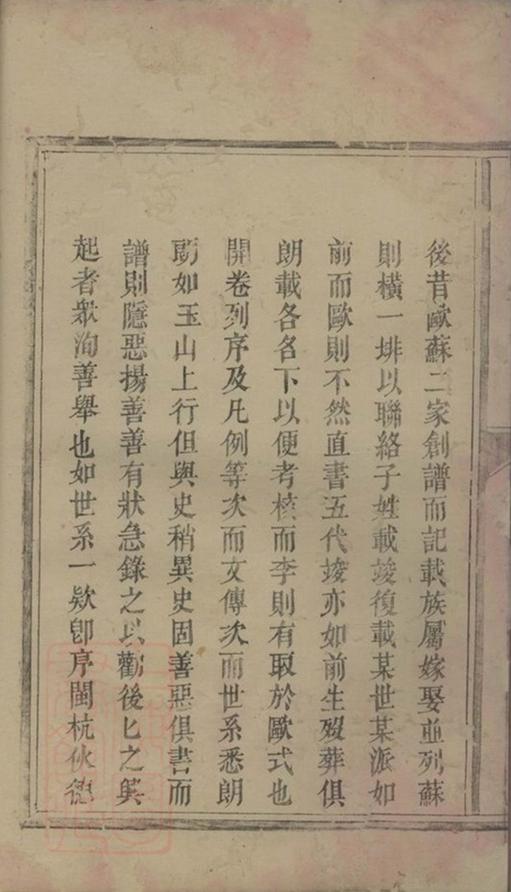 後昔歐蘇二家創譜而記載族屬嫁娶並列蘇
則橫一排以聯絡子姓載竣復載某世某派如
前而歐則不然直書五代竣亦如前生歿葬俱
朗載各名下以便考核而李則有取於歐式也
開卷列序及凡例等次而文傳次而世系悉朗
朗如玉山上行但與史稍異史固善惡俱書而
譜則隱惡揚善善有狀急錄之以勸後匕之興
起者眾洵善舉也如世系一欵卽序閩杭伙